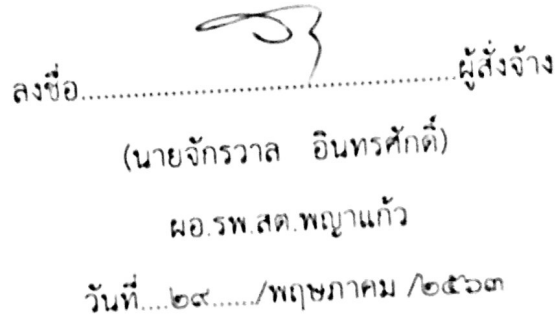 ลงชื่อ..................................................ผู้สั่งจ้าง
(นายจักรวาล อินทรศักดิ์)
ผอ.รพ.สต.พญาแก้ว
วันที่....๒๙....../พฤษภาคม /๒๕๖๓